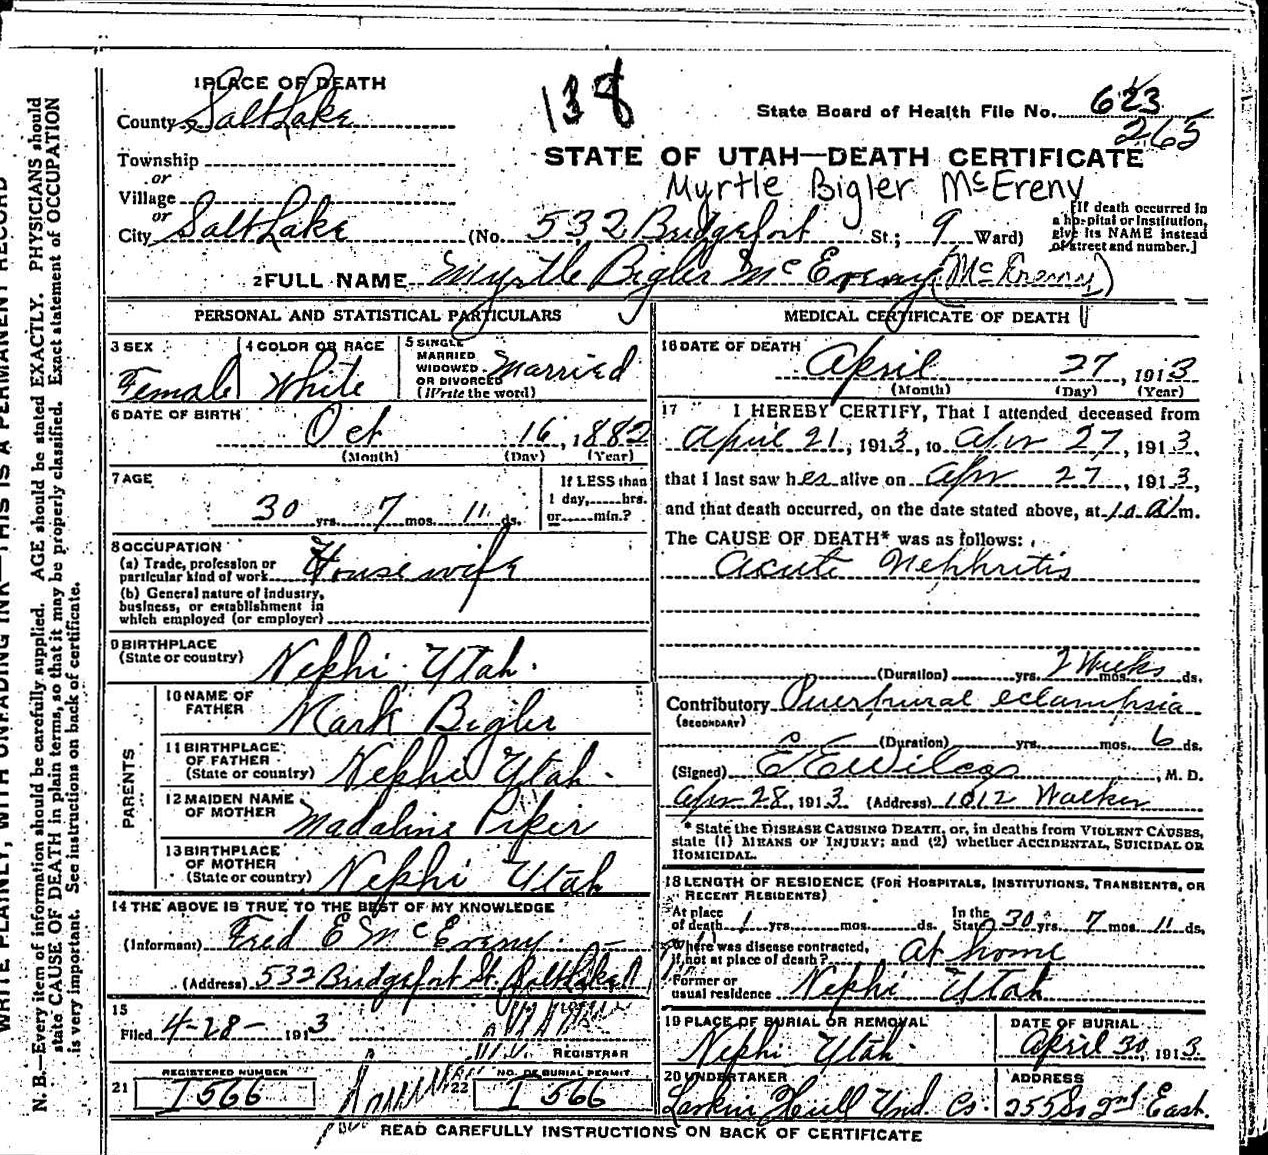 1 PLACE OF DEATH
County Salt Lake
138
State Board of Health File No. 623
265
Township
or
Village
or
City Salt Lake
STATE OF UTAH—DEATH CERTIFICATE
Myrtle Bigler McEreny
(No. 532 Bridgefort St.; 9 Ward)
[If death occurred in
a hospital or institution,
give its NAME instead
of street and number.]
2 FULL NAME Myrtle Bigler McEreny (McEreny)
PERSONAL AND STATISTICAL PARTICULARS
3 SEX
Female
4 COLOR OR RACE
White
5 SINGLE
MARRIED
WIDOWED
OR DIVORCED
(Write the word)
Married
6 DATE OF BIRTH
Oct 16, 1882
(Month) (Day) (Year)
7 AGE
30 yrs. 7 mos. 11 ds.
If LESS than
1 day, hrs.
or min.?
8 OCCUPATION
(a) Trade, profession or
particular kind of work Housewife
(b) General nature of industry,
business, or establishment in
which employed (or employer)
9 BIRTHPLACE
(State or country)
Nephi, Utah.
PARENTS
10 NAME OF
FATHER
Mark Bigler
11 BIRTHPLACE
OF FATHER
(State or country) Nephi Utah.
12 MAIDEN NAME
OF MOTHER
Madaline Piker
13 BIRTHPLACE
OF MOTHER
(State or country) Nephi Utah
14 THE ABOVE IS TRUE TO THE BEST OF MY KNOWLEDGE
(Informant) Fred E McEreny
(Address) 532 Bridgefort St. Salt Lake
15
Filed 4-28- 1913
REGISTRAR
REGISTERED NUMBER
21 I566
NO. OF BURIAL PERMIT
22 I 566
MEDICAL CERTIFICATE OF DEATH
16 DATE OF DEATH
April 27, 1913
(Month) (Day) (Year)
17 I HEREBY CERTIFY, That I attended deceased from
April 21, 1913, to Apr 27, 1913,
that I last saw her alive on Apr 27, 1913,
and that death occurred, on the date stated above, at 10 A m.
The CAUSE OF DEATH* was as follows:
Acute Nephritis
(Duration) yrs. mos. ds.
2 Weeks
Contributory Puerpural eclampsia
(SECONDARY)
(Duration) yrs. mos. 6 ds.
(Signed) E E Wilcox, M. D.
Apr 28, 1913 (Address) 1012 Walker
* State the DISEASE CAUSING DEATH, or, in deaths from VIOLENT CAUSES,
state (1) MEANS OF INJURY; and (2) whether ACCIDENTAL, SUICIDAL OR
HOMICIDAL.
18 LENGTH OF RESIDENCE (FOR HOSPITALS, INSTITUTIONS, TRANSIENTS, OR
RECENT RESIDENTS)
At place
of death 1 yrs. mos. ds.
In the
State 30 yrs. 7 mos. 11 ds.
Where was disease contracted,
if not at place of death? At home
Former or
usual residence Nephi Utah
19 PLACE OF BURIAL OR REMOVAL
Nephi Utah.
DATE OF BURIAL
April 30, 1913
20 UNDERTAKER
Larkin Hull Und. Co.
ADDRESS
255 So 2nd East.
READ CAREFULLY INSTRUCTIONS ON BACK OF CERTIFICATE
WRITE PLAINLY, WITH UNFADING INK—THIS IS A PERMANENT RECORD
N. B.—Every item of information should be carefully supplied. AGE should be stated EXACTLY. PHYSICIANS should
state CAUSE OF DEATH in plain terms, so that it may be properly classified. Exact statement of OCCUPATION
is very important. See instructions on back of certificate.